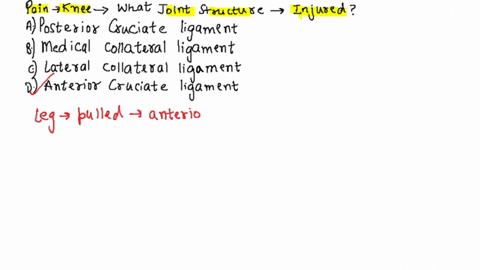 Pain → Knee → What Joint Structure → Injured?
A) Posterior Cruciate ligament
B) Medical Collateral ligament
C) Lateral Collateral ligament
D) Anterior Cruciate ligament
Leg → pulled → anterio